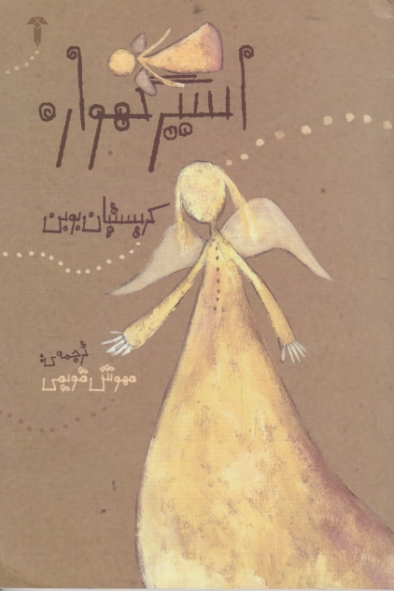 اسیر گهواره
کریستیان بوبن
ترجمه‌ی:
مهوش قویمی